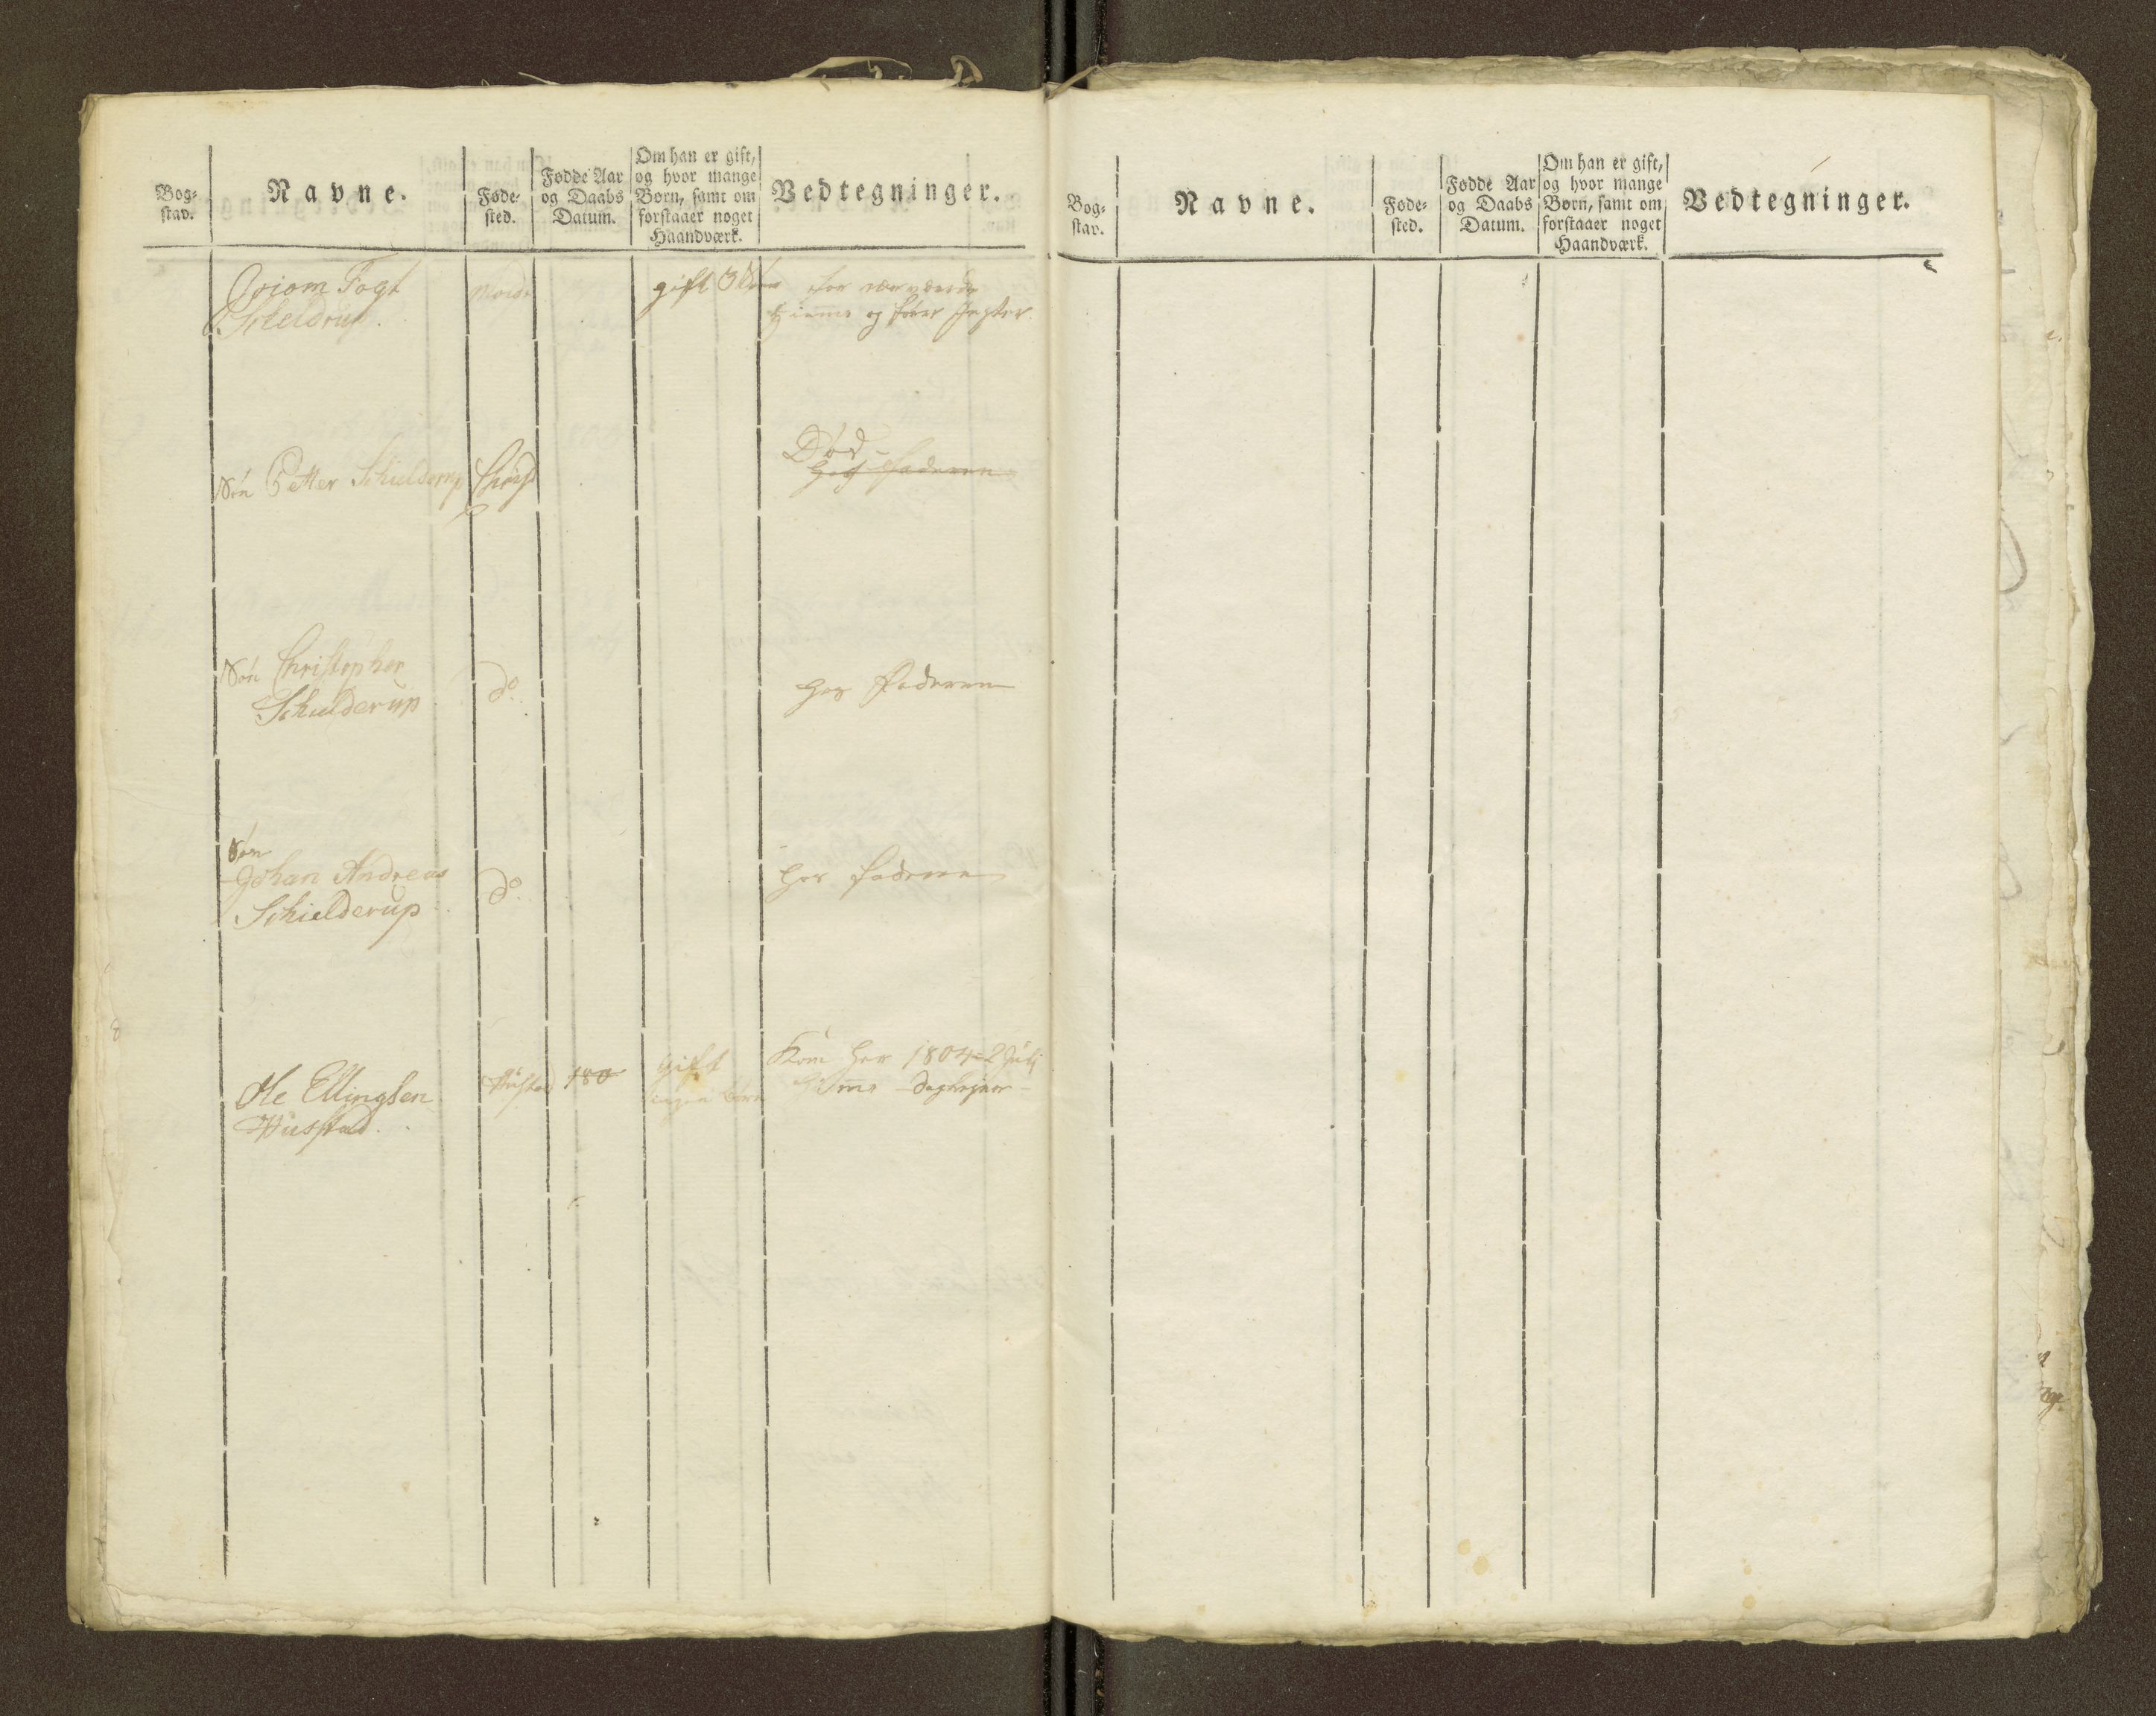 Bog-
stav.
Navne.
Føde-
sted.
Fødde Aar
og Daabs
Datum.
Om han er gift,
og hvor mange
Børn, samt om
forstaaer noget
Haandværk.
Vedtegninger.
Fogt
gift 3
og
Død
Søn Petter Schielderup
hos Faderen
Søn Christopher
Schielderup
do
hos Faderen
Søn
Johan Andreas
Schielderup
do
hos Faderen
Ole Ellingsen
Hustad
Hustad
180
gift
ingen Børn
Kom her 1804 = 2 Juli
Bog-
stav.
Navne.
Føde-
sted.
Fødde Aar
og Daabs
Datum.
Om han er gift,
og hvor mange
Børn, samt om
forstaaer noget
Haandværk.
Vedtegninger.